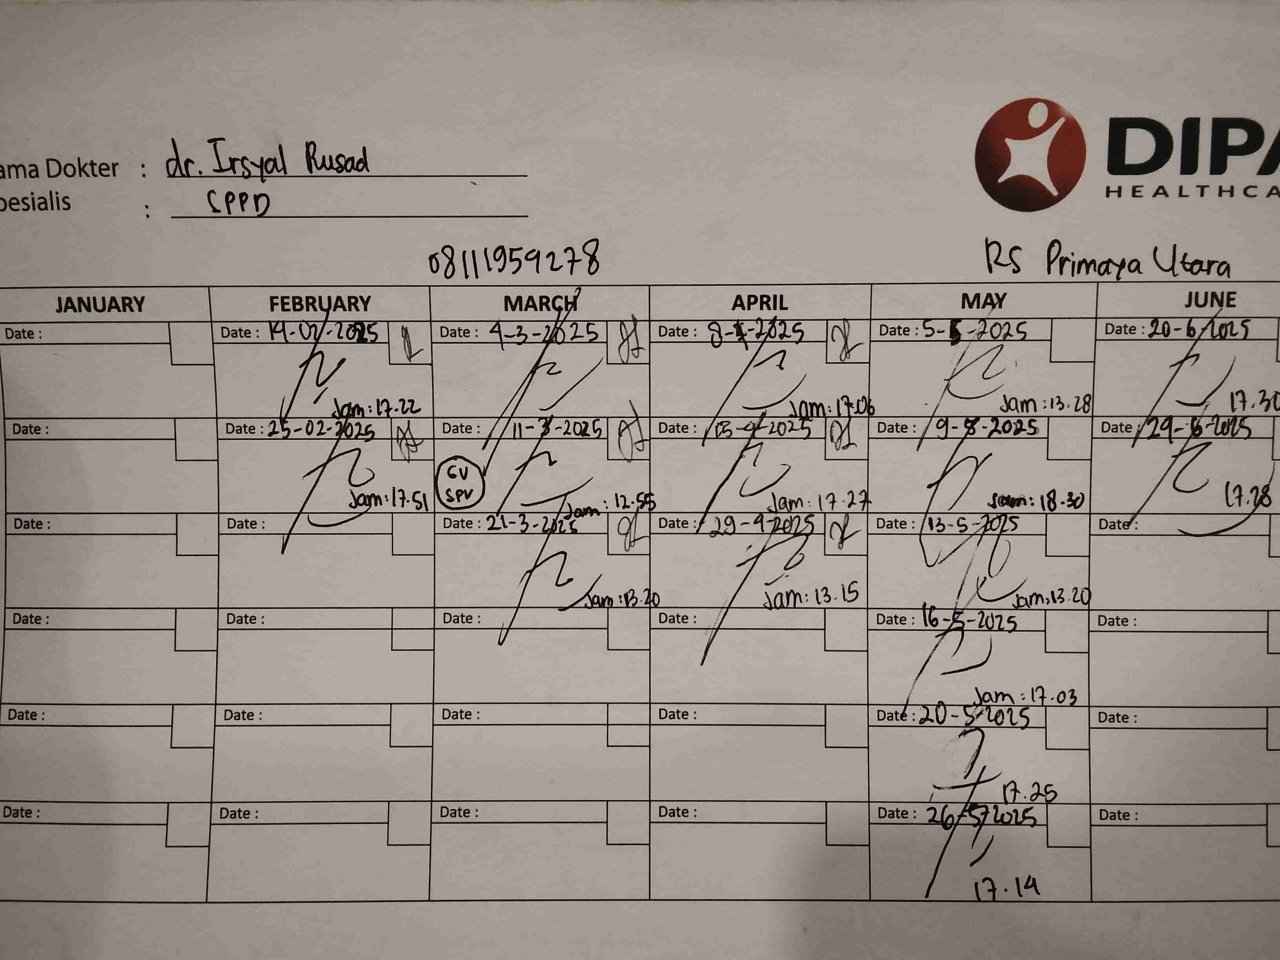 ama Dokter : dr. Irsyal Rusad
pesialis : SPPD
DIPA
HEALTHCA
08111959278
RS Primaya Utara
JANUARY FEBRUARY MARCH APRIL MAY JUNE
Date : Date : 14-02-2025 Date : 4-3-2025 Date : 8-4-2025 Date : 5-5-2025 Date : 20-6-2025
Jam: 17.22 Jam: 17.06 Jam: 13.28 17.30
Date : Date : 25-02-2025 Date : 11-3-2025 Date : -4-2025 Date : 9-5-2025 Date : 29-6-2025
GV
SPV
Jam: 17.51 Jam: 12.55 Jam: 17.27 Jam: 18.30 17.28
Date : Date : Date : 21-3-2025 Date : 29-4-2025 Date : 13-5-2025 Date :
Jam: 13.20 Jam: 13.15 Jam: 13.20
Date : Date : Date : Date : Date : 16-5-2025 Date :
Jam: 17.03
Date : Date : Date : Date : Date : 20-5-2025 Date :
17.25
Date : Date : Date : Date : Date : 26-5-2025 Date :
17.14